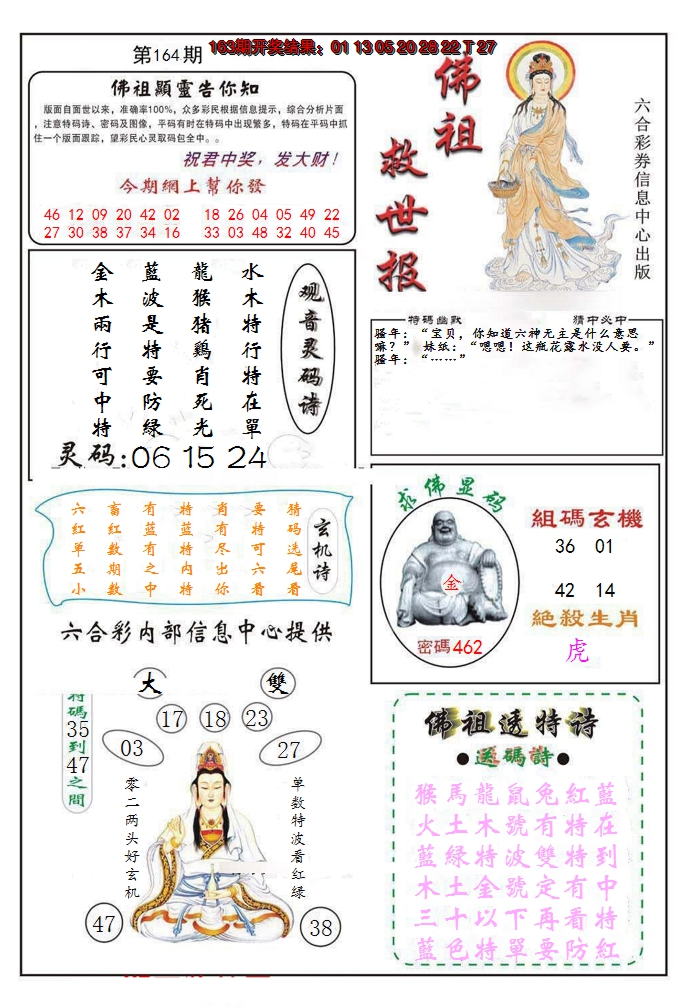 第164期
163期开奖结果：01 13 05 20 28 22 丁 27
佛祖顯靈告你知
版面自面世以来，准确率100%，众多彩民根据信息提示，综合分析片面
，注意特码诗、密码及图像，平码有时在特码中出现繁多，特码在平码中抓
住一个版面跟踪，望彩民心灵取码包全中。。
祝君中奖，发大财！
今期網上幫你發
46 12 09 20 42 02 18 26 04 05 49 22
27 30 38 37 34 16 33 03 48 32 40 45
佛祖
救世报
六合彩券信息中心出版
金 藍 龍 水
木 波 猴 木
兩 是 猪 特
行 特 鷄 行
可 要 肖 特
中 防 死 在
特 緑 光 單
观音灵码诗
灵码:06 15 24
特碼幽默 猜中必中
骚年：“宝贝，你知道六神无主是什么意思
嘛？” 妹纸：“嗯嗯！这瓶花露水没人要。”
骚年：“……”
六 畜 有 特 肖 要 猜
红 红 蓝 蓝 有 特 码
单 数 有 特 尽 可 选
五 期 之 内 出 六 尾
小 数 中 特 你 看 看
玄机诗
六合彩内部信息中心提供
求佛显码
金
密碼462
組碼玄機
36 01
42 14
絶殺生肖
虎
大 雙
17 18 23
03 27
特碼35到47之間
零二两头好玄机
单数特波看红绿
47 38
佛祖透特诗
●送碼詩●
猴馬龍鼠兔紅藍
火土木號有特在
藍緑特波雙特到
木土金號定有中
三十以下再看特
藍色特單要防紅